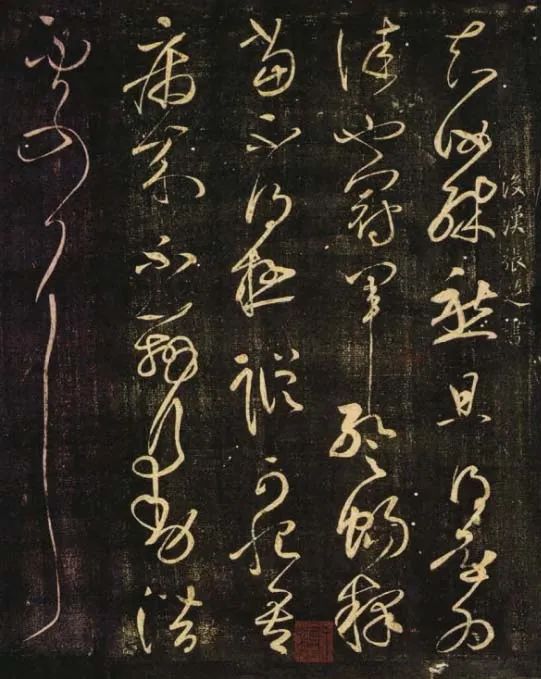 後漢張芝書
知汝殊愁且得還為
佳也冠軍暫暢釋
當不得極蹤可恨吾
病來不辦行動潛
處可耳